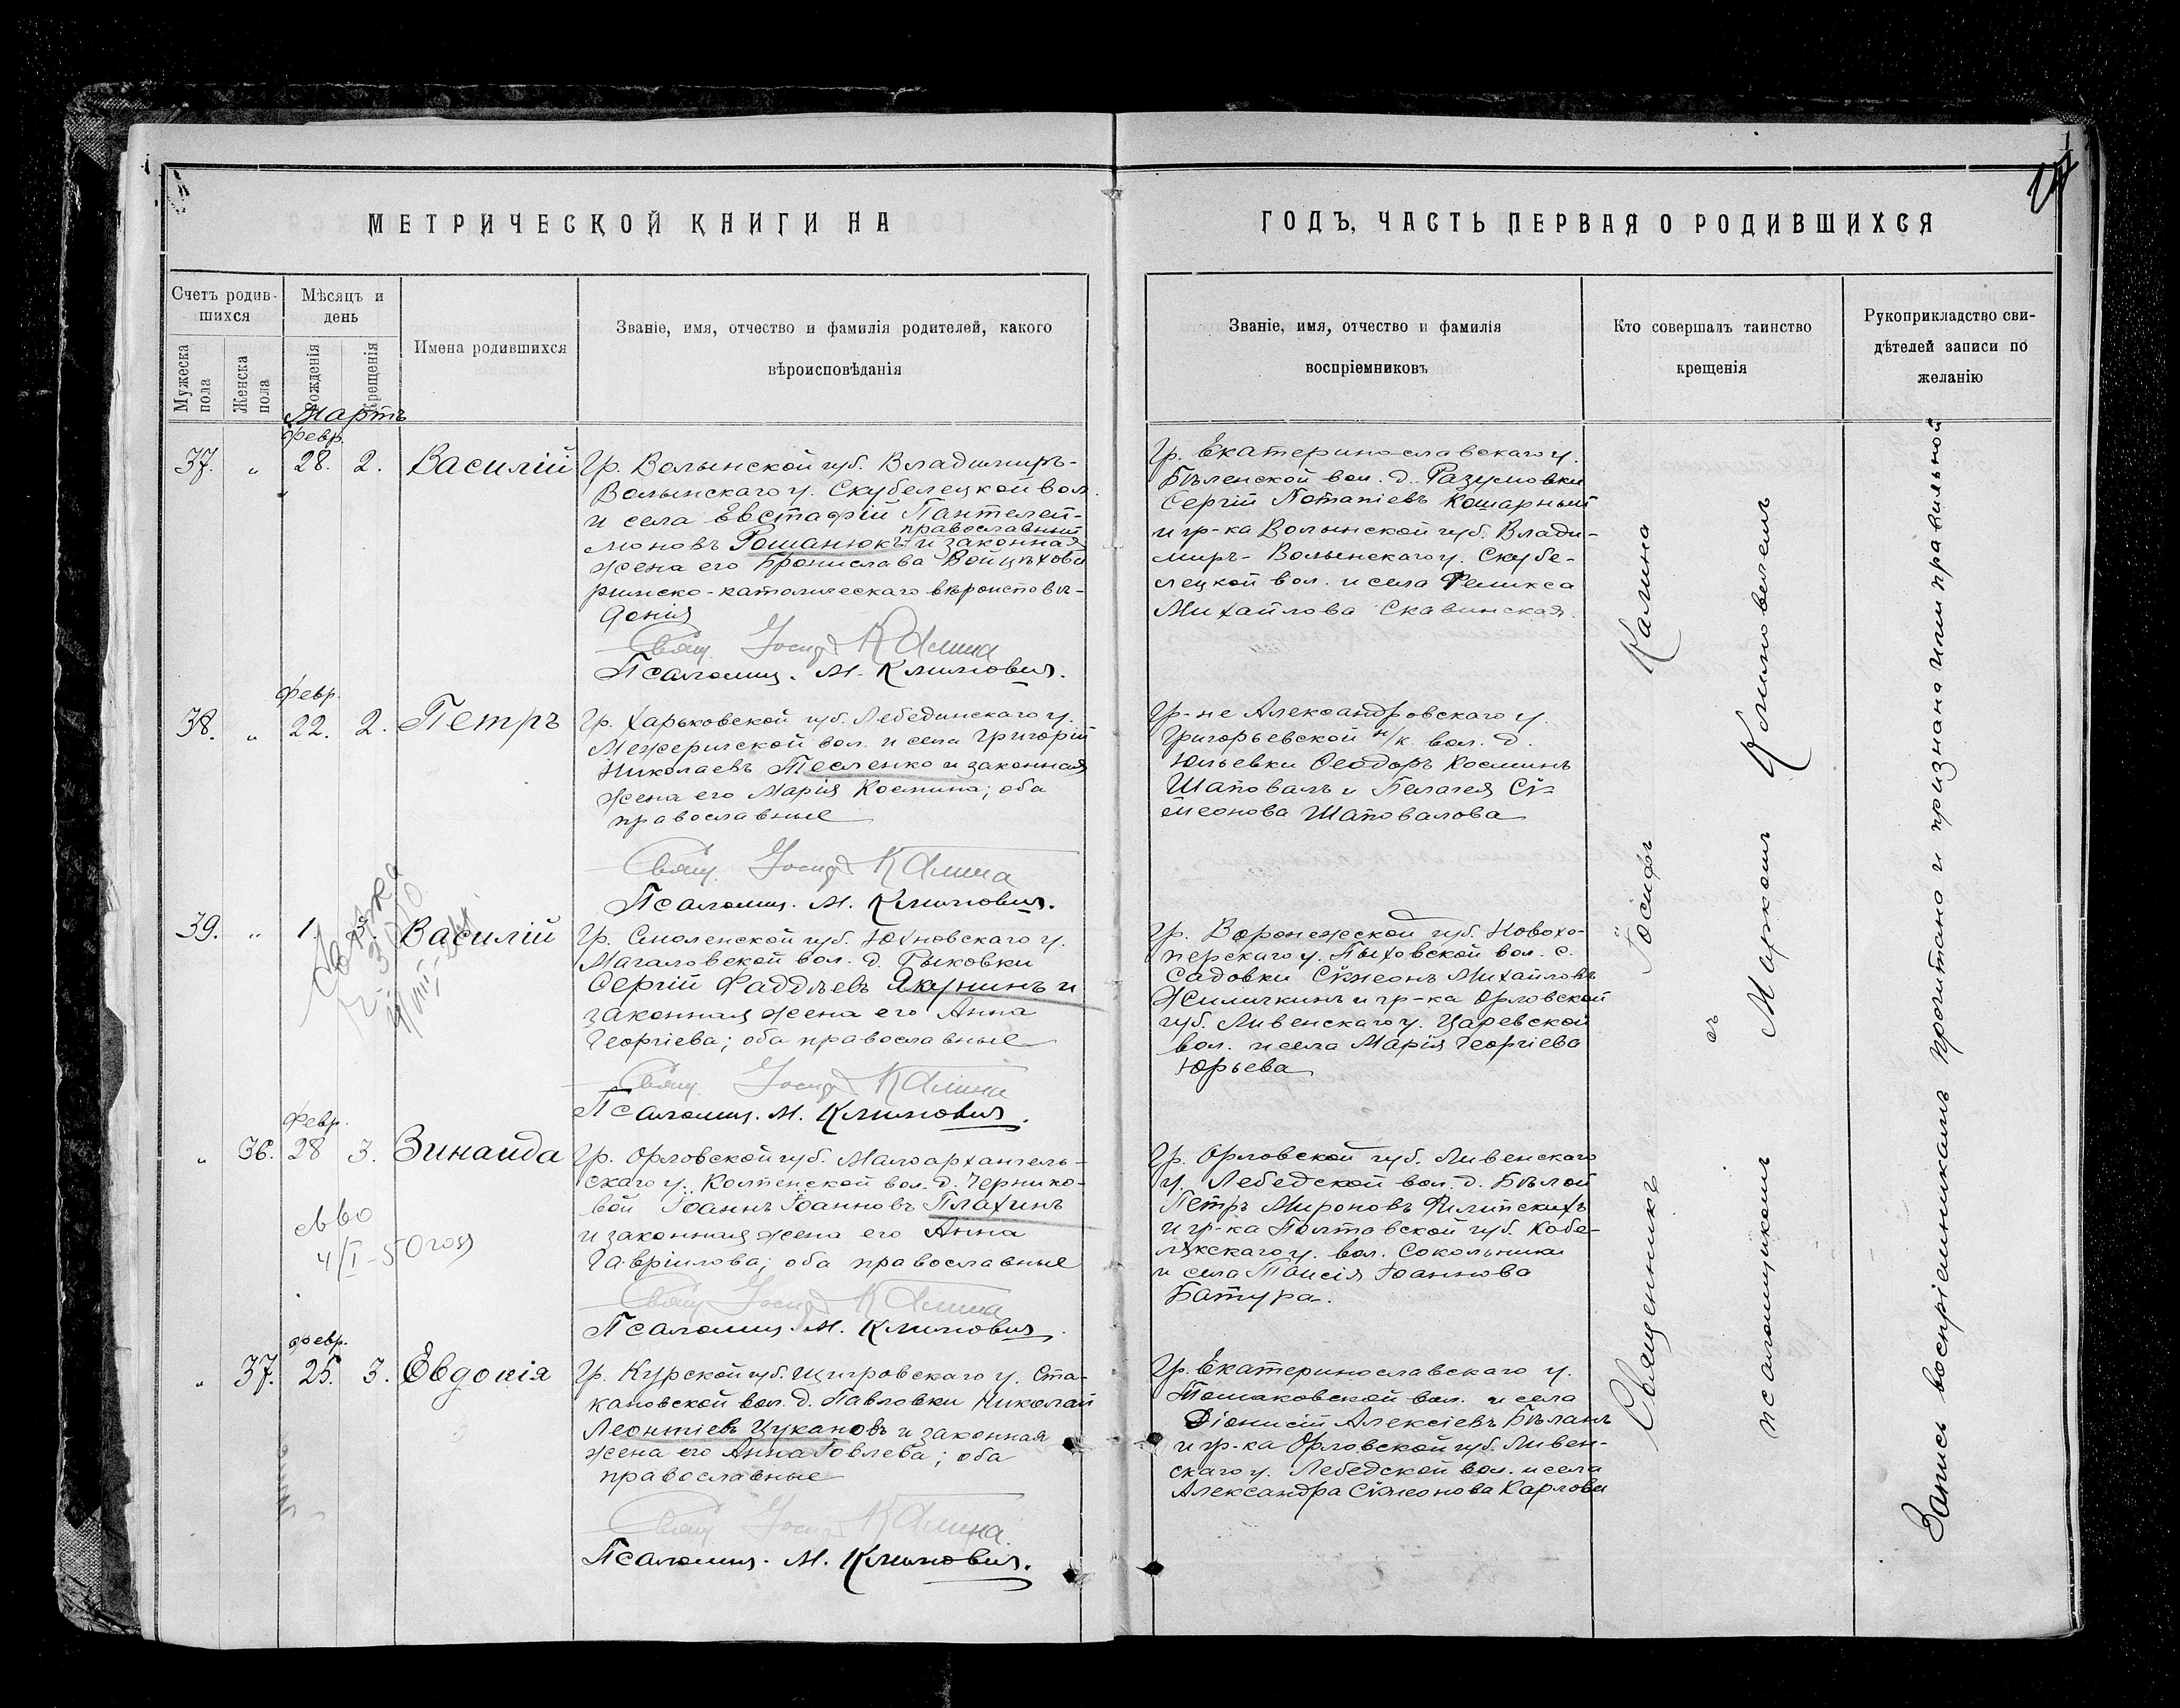 МЕТРИЧЕСКОЙ КНИГИ НА
Счетъ родив-
шихся
Мужеска
пола
Женска
пола
Мѣсяцъ и
день
Рожденія
Крещенія
Имена родившихся
Званіе, имя, отчество и фамилія родителей, какого
вѣроисповѣданія
Мартъ
февр.
37. " 28. 2. Василій
Гр. Волынской губ. Владимиръ-
Волынскаго у. Скубелецкой вол.
и села Евстафій Пантелей-
православный
моновъ Рошанюкъ и законная
жена его Бронислава Войцѣхова
римско-католическаго вѣроисповѣ-
данія
Свящ. Іосифъ Калина
Псаломщ. М. Климович.
февр.
38. " 22. 2. Петръ
Гр. Харьковской губ. Лебединскаго у.
Межеричской вол. и села Григорій
Николаевъ Тесленко и законная
жена его Марія Космина; оба
православные
Свящ. Іосифъ Калина
Псаломщ. М. Климович.
39. " 1. Василій
Гр. Смоленской губ. Юхновскаго у.
Магаловской вол. д. Рыковки
Сергій Фаддѣевъ Якунинъ и
законная жена его Анна
Георгіева; оба православные
Свящ. Іосифъ Калина
Псаломщ. М. Климович.
февр.
" 36. 28 3. Зинаида
Гр. Орловской губ. Малоархангель-
скаго у. Колпенской вол. д. Чернико-
вой Іоаннъ Іоанновъ Плахинъ
и законная жена его Анна
Гавріилова; оба православные
4/I-50
Свящ. Іосифъ Калина
Псаломщ. М. Климович.
февр.
" 37. 25. 3. Евдокія
Гр. Курской губ. Щигровскаго у. Ста-
кановской вол. д. Павловки Николай
Леонтіевъ Цукановъ и законная
жена его Анна Іовлева; оба
православные
Свящ. Іосифъ Калина
Псаломщ. М. Климович.
ГОДЪ, ЧАСТЬ ПЕРВАЯ О РОДИВШИХСЯ
Званіе, имя, отчество и фамилія
воспріемниковъ
Кто совершалъ таинство
крещенія
Рукоприкладство сви-
дѣтелей записи по
желанію
Гр. Екатеринославскаго у.
Бѣленской вол. д. Разумовки
Сергій Потапіевъ Кошарный
и гр-ка Волынской губ. Влади-
миръ-Волынскаго у. Скубе-
лецкой вол. и села Феликса
Михайлова Скавинская.
Гр-не Александровскаго у.
Григорьевской н/к вол. д.
Юльевки Ѳеодоръ Косминъ
Шаповалъ и Пелагея Сѵ-
меонова Шаповалова
Гр. Воронежской губ. Новохо-
перскаго у. Пыховской вол. с.
Садовки Сѵмеонъ Михайловъ
Жиличкинъ и гр-ка Орловской
губ. Ливенскаго у. Царевской
вол. и села Марія Георгіева
Юрьева
Гр. Орловской губ. Ливенскаго
у. Лебедской вол. д. Бѣлой
Петръ Мироновъ Филипскихъ
и гр-ка Полтавской губ. Кобе-
лякскаго у. вол. Сокольники
и села Таисія Іоаннова
Батура.
Гр. Екатеринославскаго у.
Томаковской вол. и села
Діонисій Алексіевъ Бѣланъ
и гр-ка Орловской губ. Ливен-
скаго у. Лебедской вол. и села
Александра Сѵмеонова Карлова
Священникъ Іосифъ Калина
съ
псаломщикомъ Маркомъ Климовичемъ
Запись воспріемникамъ прочитана и признана ими правильной